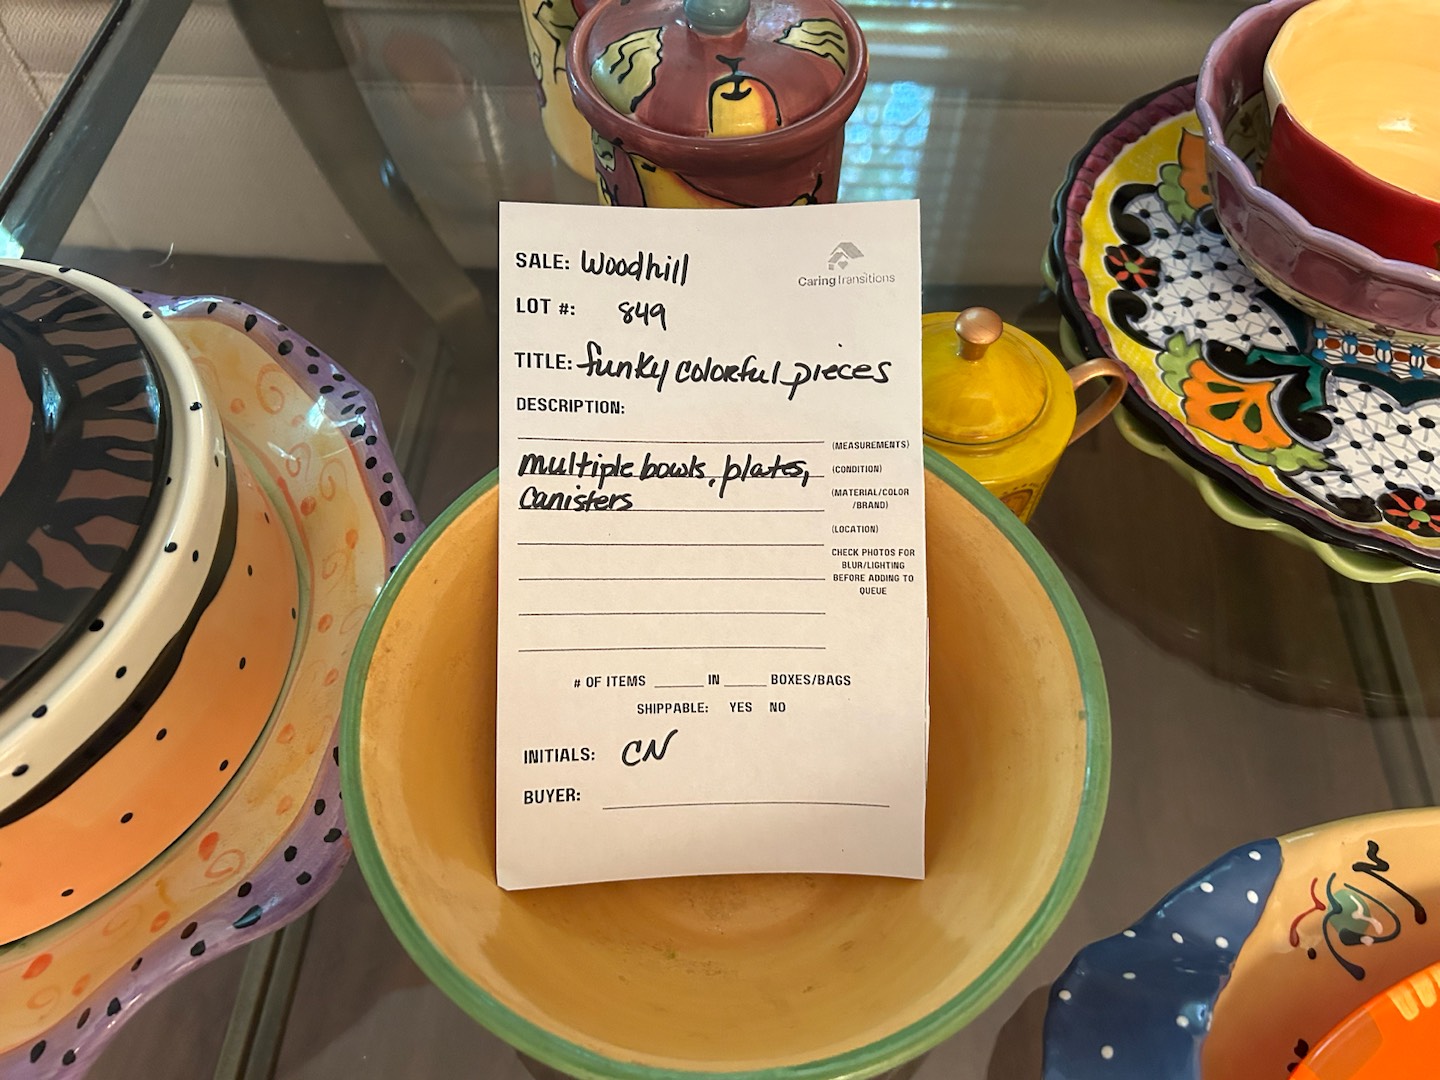 SALE: Woodhill
CaringTransitions
LOT #: 849
TITLE: funky colorful pieces
DESCRIPTION:
(MEASUREMENTS)
multiple bowls, plates,
(CONDITION)
canisters
(MATERIAL/COLOR
/BRAND)
(LOCATION)
CHECK PHOTOS FOR
BLUR/LIGHTING
BEFORE ADDING TO
QUEUE
# OF ITEMS ______ IN _____ BOXES/BAGS
SHIPPABLE: YES NO
INITIALS: CN
BUYER: